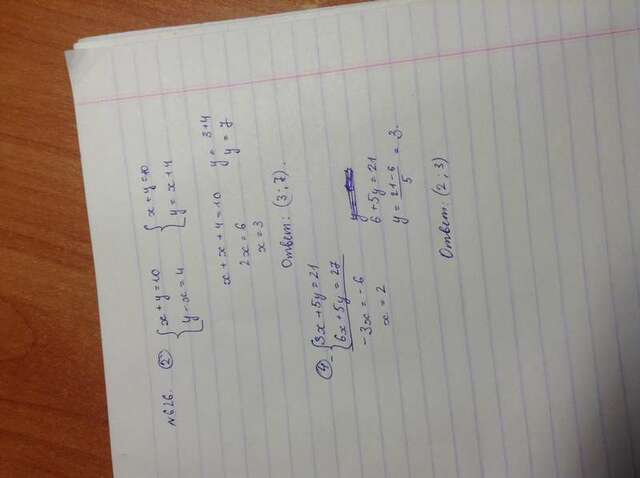 №626. ② { x + y = 10 { x + y = 10
{ y - x = 4 { y = x + 4
x + x + 4 = 10 y = 3+4
2x = 6 y = 7
x = 3
Ответ: (3; 7).
④ - { 3x + 5y = 21
{ 6x + 5y = 27
-3x = -6 6 + 5y = 21
x = 2 y = \frac{21-6}{5} = 3.
Ответ: (2; 3)